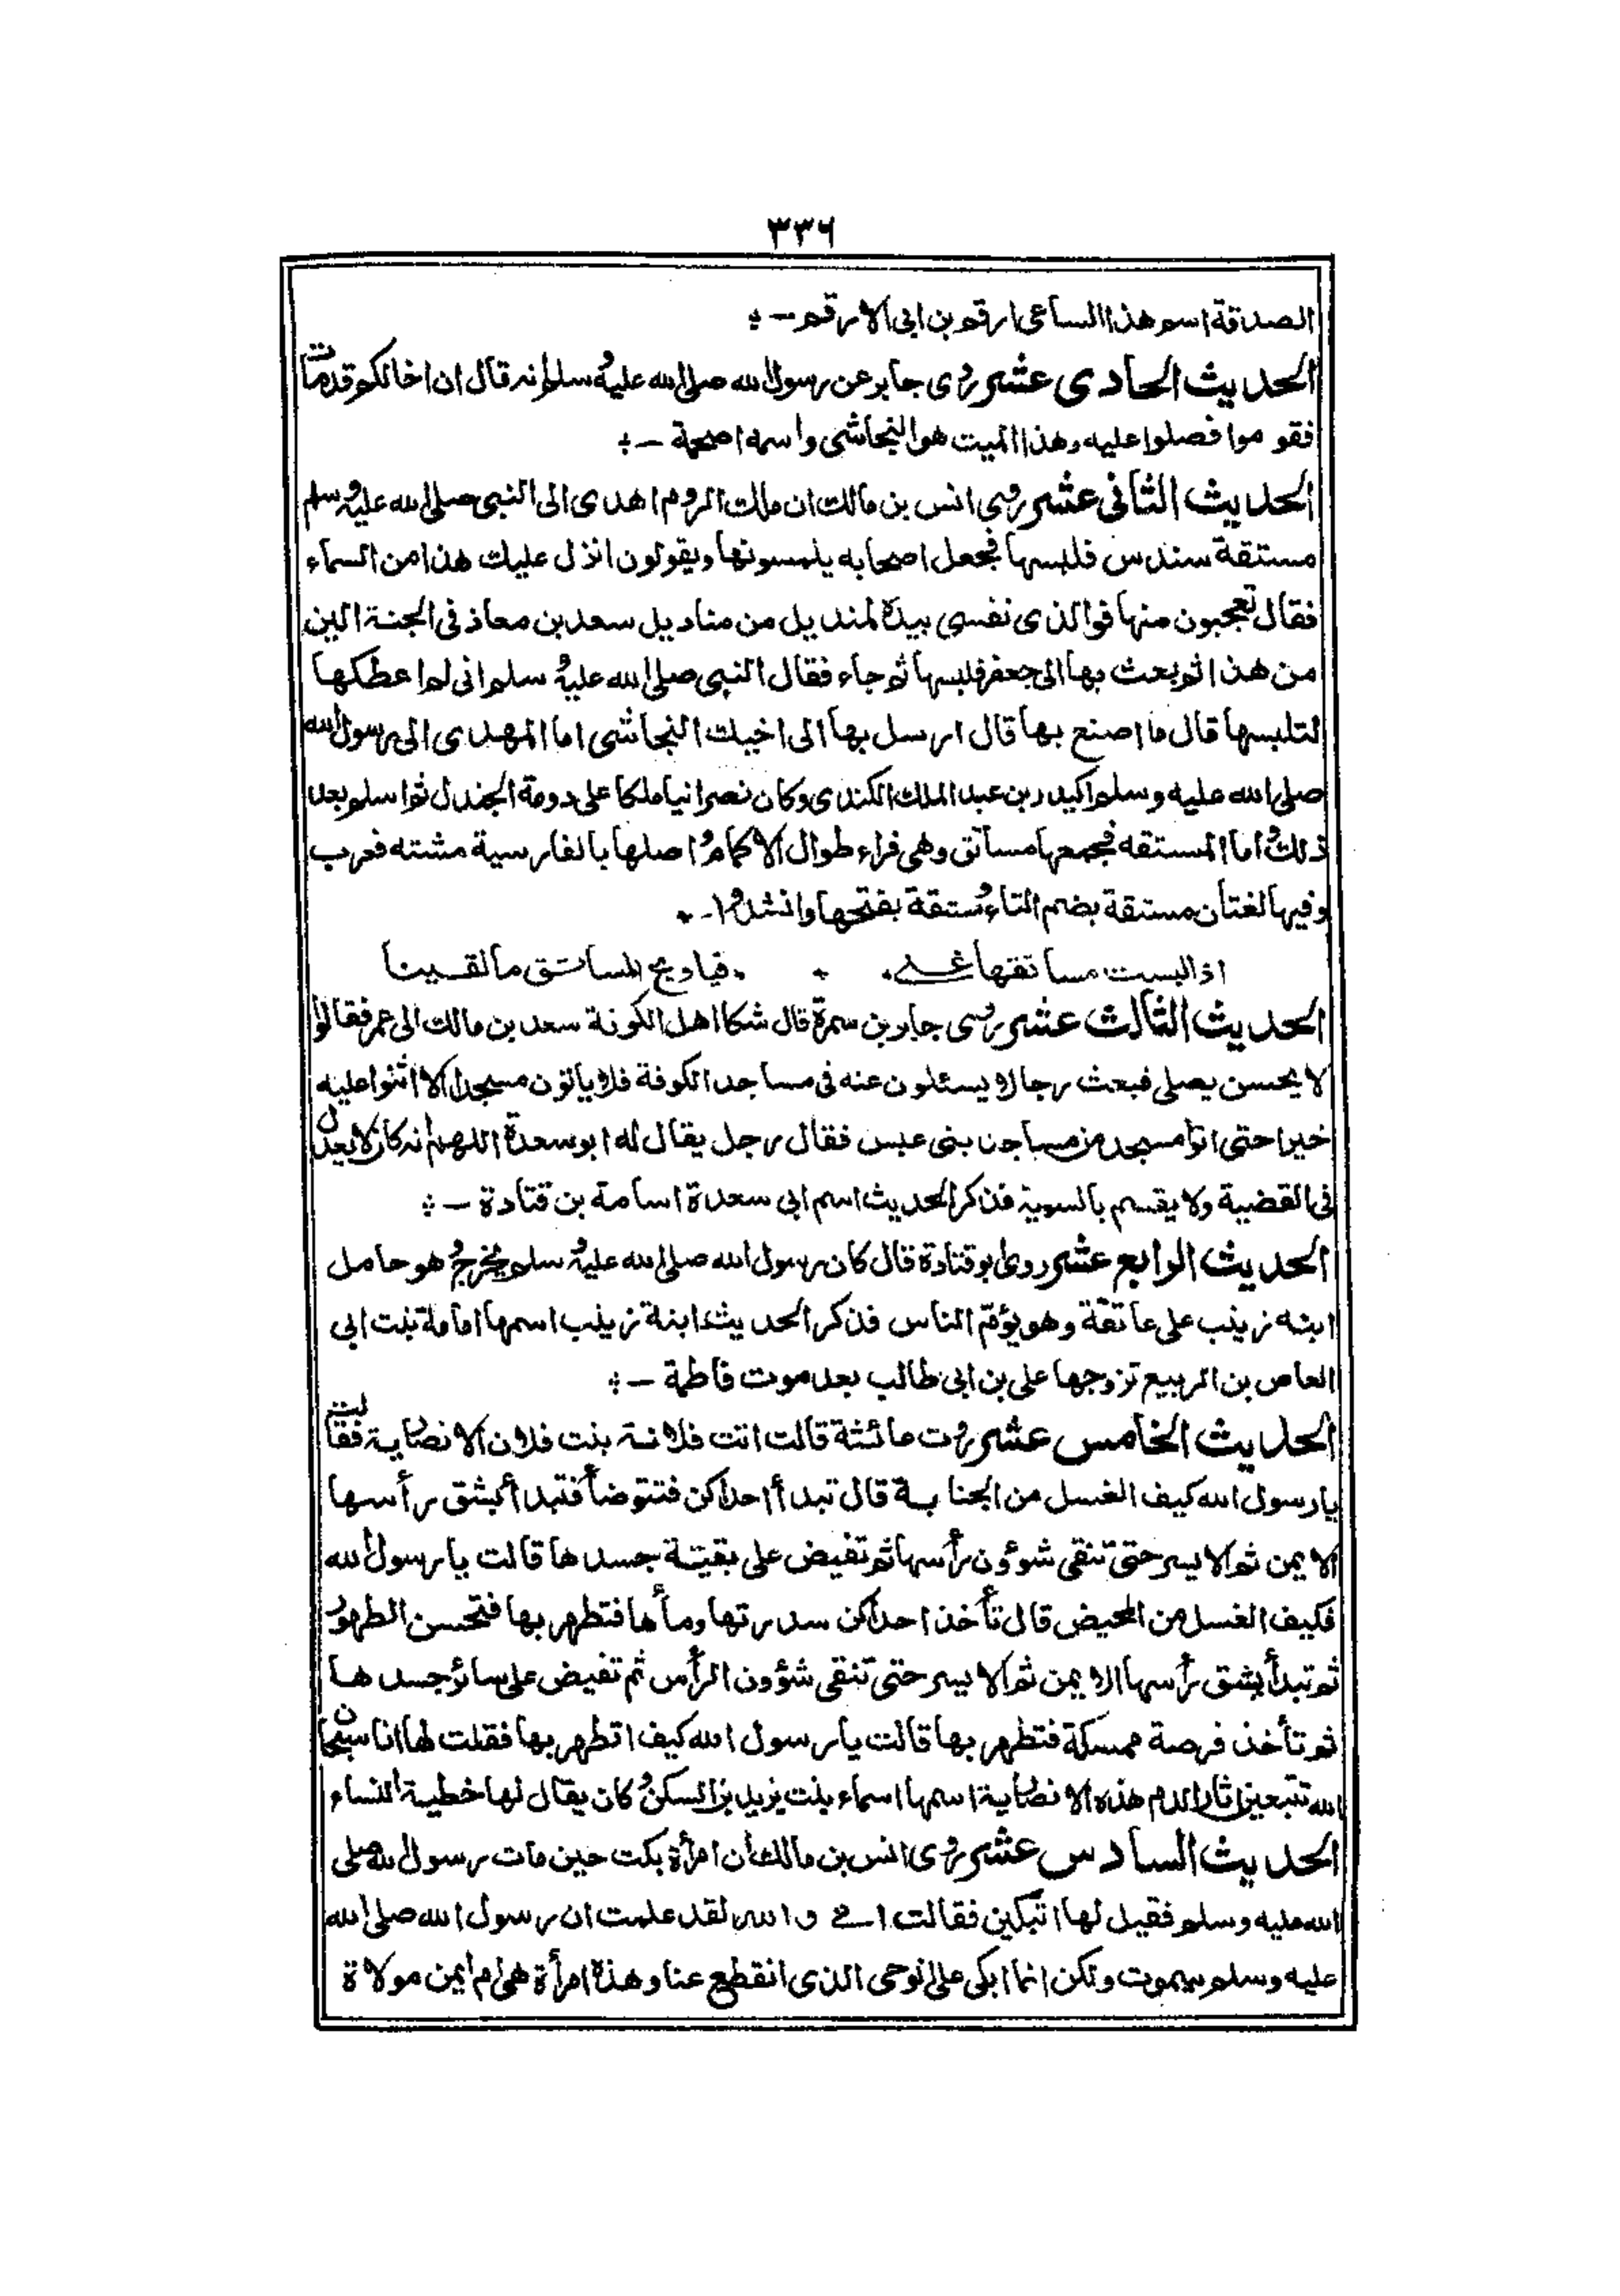 ٣٣٦
الصدقة اسم هذا الساعى ارقم بن ابى الارقم -
الحديث الحادى عشر روى جابر عن رسول الله صلى الله عليه وسلم انه قال ان اخا لكم قد مات
فقوموا فصلوا عليه وهذا الميت هو النجاشى واسمه اصحمة -
الحديث الثانى عشر روى انس بن مالك ان ملك الروم اهدى الى النبى صلى الله عليه وسلم
مستقة سندس فلبسها فجعل اصحابه يلمسونها ويقولون انزل عليك هذا من السماء
فقال تعجبون منها فوالذى نفسى بيده لمنديل من مناديل سعد بن معاذ فى الجنة الين
من هذا ثم بعث بها الى جعفر فلبسها ثم جاء فقال النبى صلى الله عليه وسلم انى لم اعطكها
لتلبسها قال ما اصنع بها قال ارسل بها الى اخيك النجاشى اما المهدى الى رسول الله
صلى الله عليه وسلم اكيدر بن عبد الملك الكندى وكان نصرانيا ملكا على دومة الجندل ثم اسلم بعد
ذلك واما المستقه فجمعها مساتق وهى فراء طوال الاكمام واصلها بالفارسية مشته فعرب
وفيها لغتان مستقة بضم التاء ومستقة بفتحها وانشدوا -
اذا لبست مساتقها غنى . . فيا ويح المساتق ما لقينا
الحديث الثالث عشر روى جابر بن سمرة قال شكا اهل الكوفة سعد بن مالك الى عمر فقالوا
لا يحسن يصلى فبعث رجالا يسئلون عنه فى مساجد الكوفة فلا يأتون مسجدا الا اثنوا عليه
خيرا حتى اتوا مسجد من مساجد بنى عبس فقال رجل يقال له ابو سعدة اللهم انه كان لا يعدل
فى القضية ولا يقسم بالسوية فذكر الحديث اسم ابى سعدة اسامة بن قتادة -
الحديث الرابع عشر روى ابو قتادة قال كان رسول الله صلى الله عليه وسلم يخرج وهو حامل
ابنه زينب على عاتقة وهو يؤم الناس فذكر الحديث ابنة زينب اسمها امامة بنت ابى
العاص بن الربيع تزوجها على بن ابى طالب بعد موت فاطمة -
الحديث الخامس عشر روت عائشة قالت اتت فلانة بنت فلان الانصارية فقالت
يا رسول الله كيف الغسل من الجنابة قال تبدأ احداكن فتتوضأ فتبدأ بشق رأسها
الايمن ثم الايسر حتى تنقى شوؤن رأسها ثم تفيض على بقية جسدها قالت يا رسول الله
فكيف الغسل من المحيض قال تأخذ احداكن سدرتها ومأها فتطهر بها فتحسن الطهور
ثم تبدأ بشق رأسها الايمن ثم الايسر حتى تنقى شؤون الرأس ثم تفيض على سائر جسدها
ثم تأخذ فرصة ممسكة فتطهر بها قالت يا رسول الله كيف اتطهر بها فقلت لها انا سبحان
الله تتبعين اثار الدم هذه الانصارية اسمها اسماء بنت يزيد بن السكن وكان يقال لها خطيبة النساء
الحديث السادس عشر روى انس بن مالك أن امرأة بكت حين مات رسول الله صلى
الله عليه وسلم فقيل لها اتبكين فقالت والله لقد علمت ان رسول الله صلى الله
عليه وسلم سيموت ولكن انما ابكى على الوحى الذى انقطع عنا وهذه امرأة هى ام ايمن مولاة